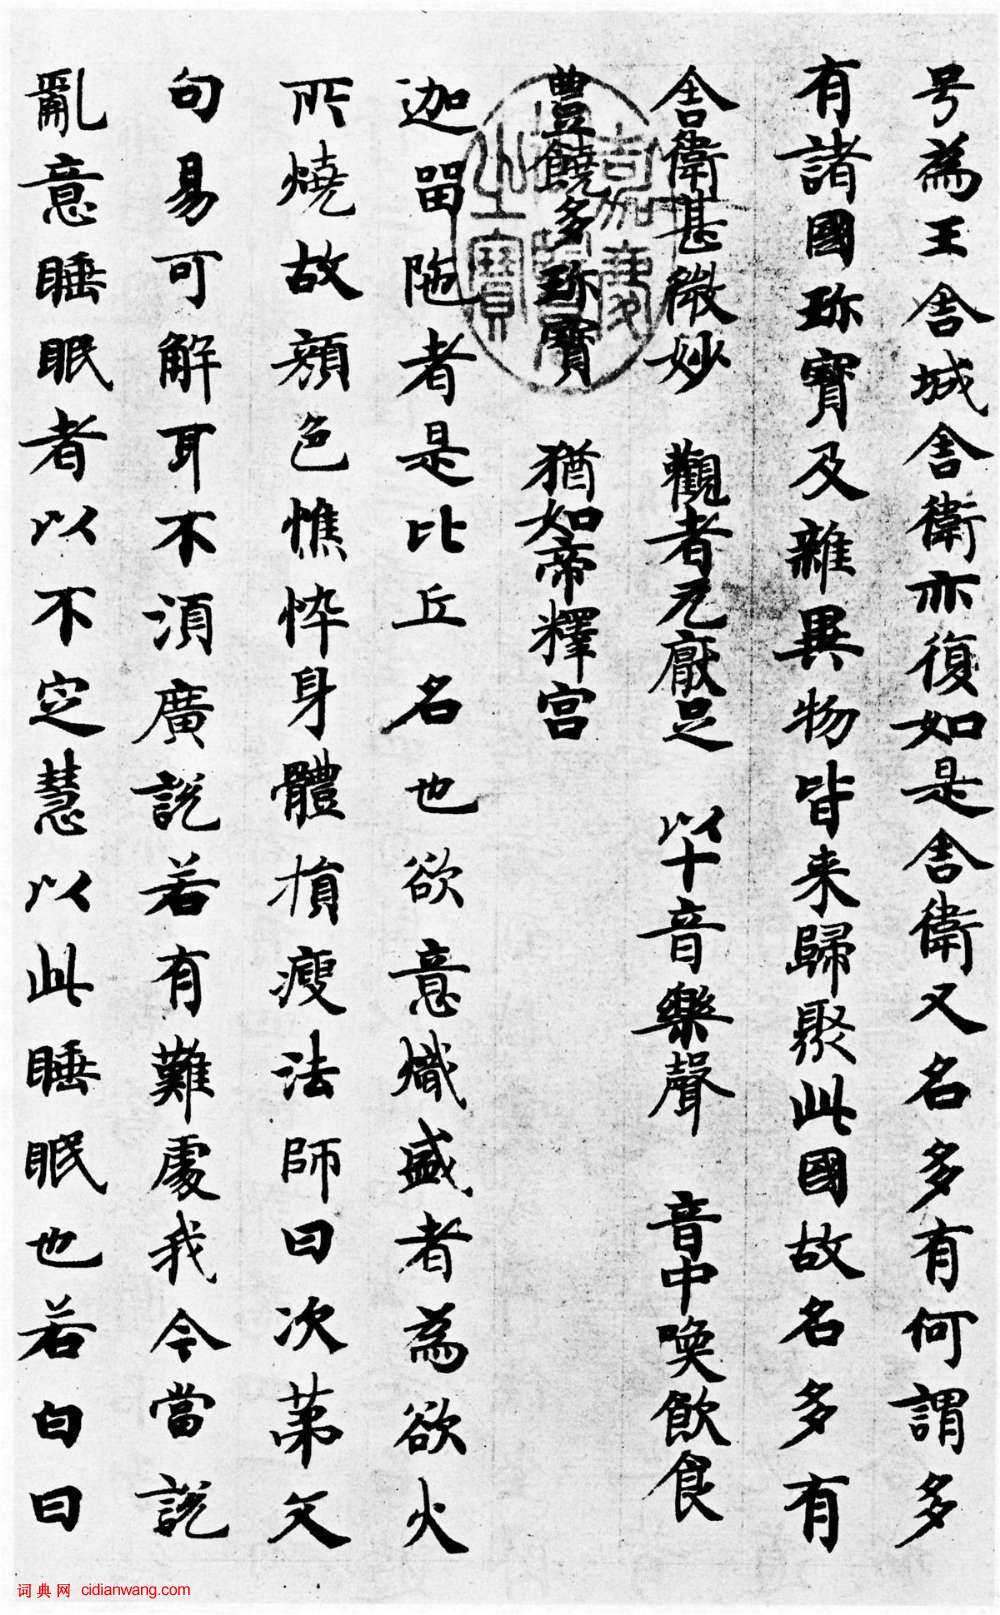 号為王舎城舎衛亦復如是舎衛又名多有何謂多
有諸國珎寳及雜異物皆来歸聚此國故名多有
舎衛甚微妙 觀者无厭足 以十音樂聲 音中喚飲食
豊饒多珎寳 猶如帝釋宫
迦留陁者是比丘名也欲意熾盛者為欲火
所燒故顔色憔悴身體損瘦法師曰次苐文
句易可解耳不湏廣說若有難處我今當說
亂意睡眠者以不定慧以此睡眠也若白日
词典网 cidianwang.com